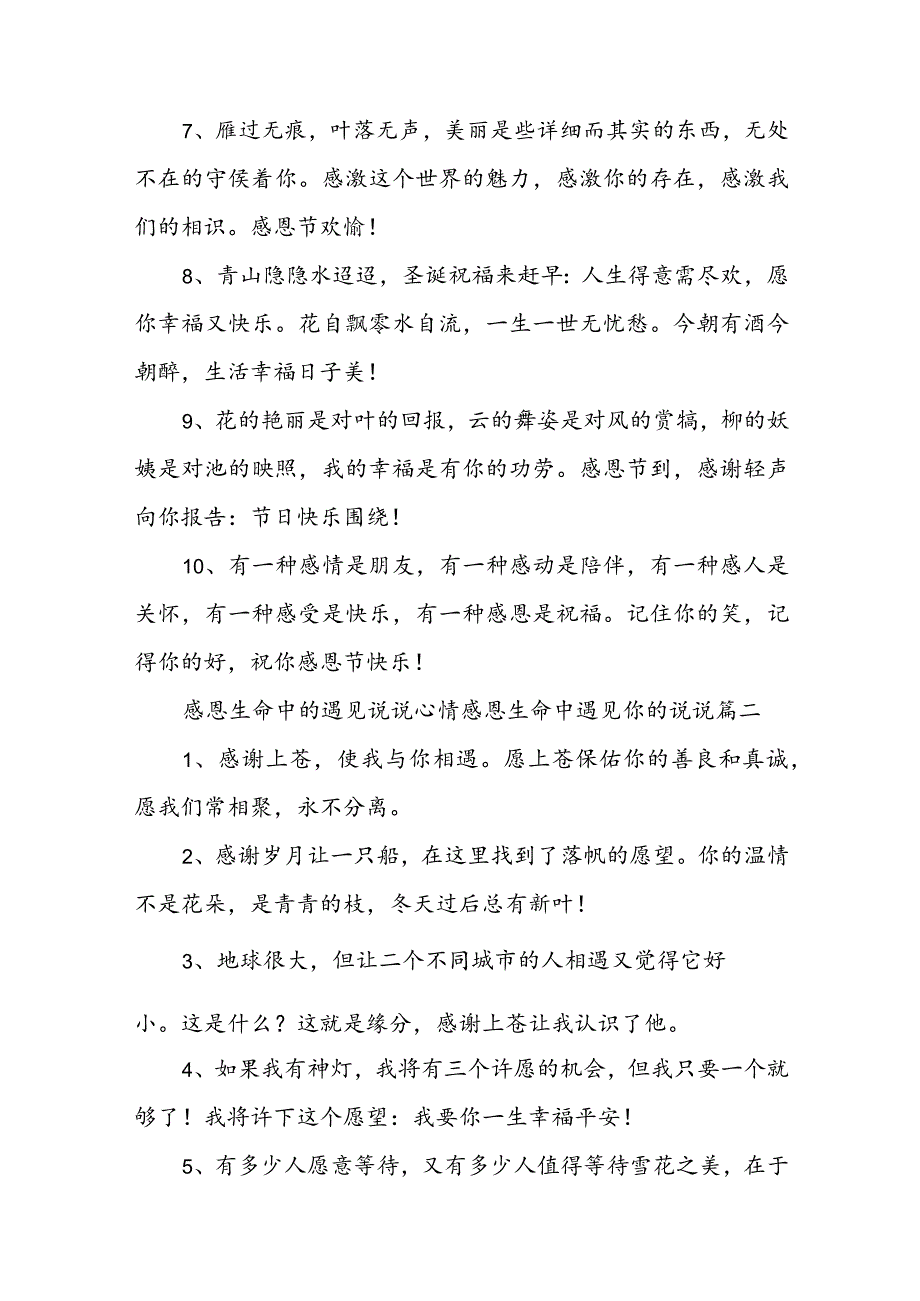 7、雁过无痕，叶落无声，美丽是些详细而其实的东西，无处
不在的守侯着你。感激这个世界的魅力，感激你的存在，感激我
们的相识。感恩节欢愉！
8、青山隐隐水迢迢，圣诞祝福来赶早：人生得意需尽欢，愿
你幸福又快乐。花自飘零水自流，一生一世无忧愁。今朝有酒今
朝醉，生活幸福日子美！
9、花的艳丽是对叶的回报，云的舞姿是对风的赏犒，柳的妖
姨是对池的映照，我的幸福是有你的功劳。感恩节到，感谢轻声
向你报告：节日快乐围绕！
10、有一种感情是朋友，有一种感动是陪伴，有一种感人是
关怀，有一种感受是快乐，有一种感恩是祝福。记住你的笑，记
得你的好，祝你感恩节快乐！
感恩生命中的遇见说说心情感恩生命中遇见你的说说篇二
1、感谢上苍，使我与你相遇。愿上苍保佑你的善良和真诚，
愿我们常相聚，永不分离。
2、感谢岁月让一只船，在这里找到了落帆的愿望。你的温情
不是花朵，是青青的枝，冬天过后总有新叶！
3、地球很大，但让二个不同城市的人相遇又觉得它好
小。这是什么？这就是缘分，感谢上苍让我认识了他。
4、如果我有神灯，我将有三个许愿的机会，但我只要一个就
够了！我将许下这个愿望：我要你一生幸福平安！
5、有多少人愿意等待，又有多少人值得等待雪花之美，在于